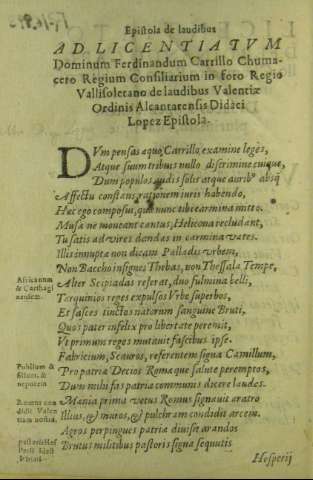 Epistola de laudibus
AD LICENTIATVM
Dominum Ferdinandum Carrillo Chuma-
cero Regium Consiliarium in foro Regio
Vallisoletano de laudibus Valentiæ
Ordinis Alcantarensis Didaci
Lopez Epistola.
DVm pensas æquo, Carrillo, examine leges,
Atque suum tribuis nullo discrimine cuique,
Dum populos audis soles atque auribº absq́
Affectu constans rationem iuris habendo,
Hæc ego composui, quæ nunc tibi carmina mitto.
Musæ ne moveant cantus, Helicona recludant,
Tu satis ad vires dandas in carmina vates.
Illis innupta non dicam Palladis vrbem,
Non Baccho insignes Thebas, non Thessala Tempe,
Africanum
& Carthagi
nensem.
Alter Scipiadas referat, duo fulmina belli,
Tarquinios reges expulsos Vrbe superbos,
Et fasces tinctos natorum sanguine Bruti,
Quos pater infelix pro libertate peremit,
Vt primum reges mutauit fascibus ipse.
Fabricium, Scauros, referentem signa Camillum,
Publium &
filium, &
nepotem
Pro patria Decios Romæque salute peremptos,
Dum mihi fas patriæ communis dicere laudes.
Romus con
didit Valen
tiam nostrã,
Mænia prima vetus Romus signauit aratro
Illius, & muros, & pulchram condidit arcem.
Agros perpingues patriæ diuisit arandos
Brutus militibus pastoris signa sequutis
Hesperij